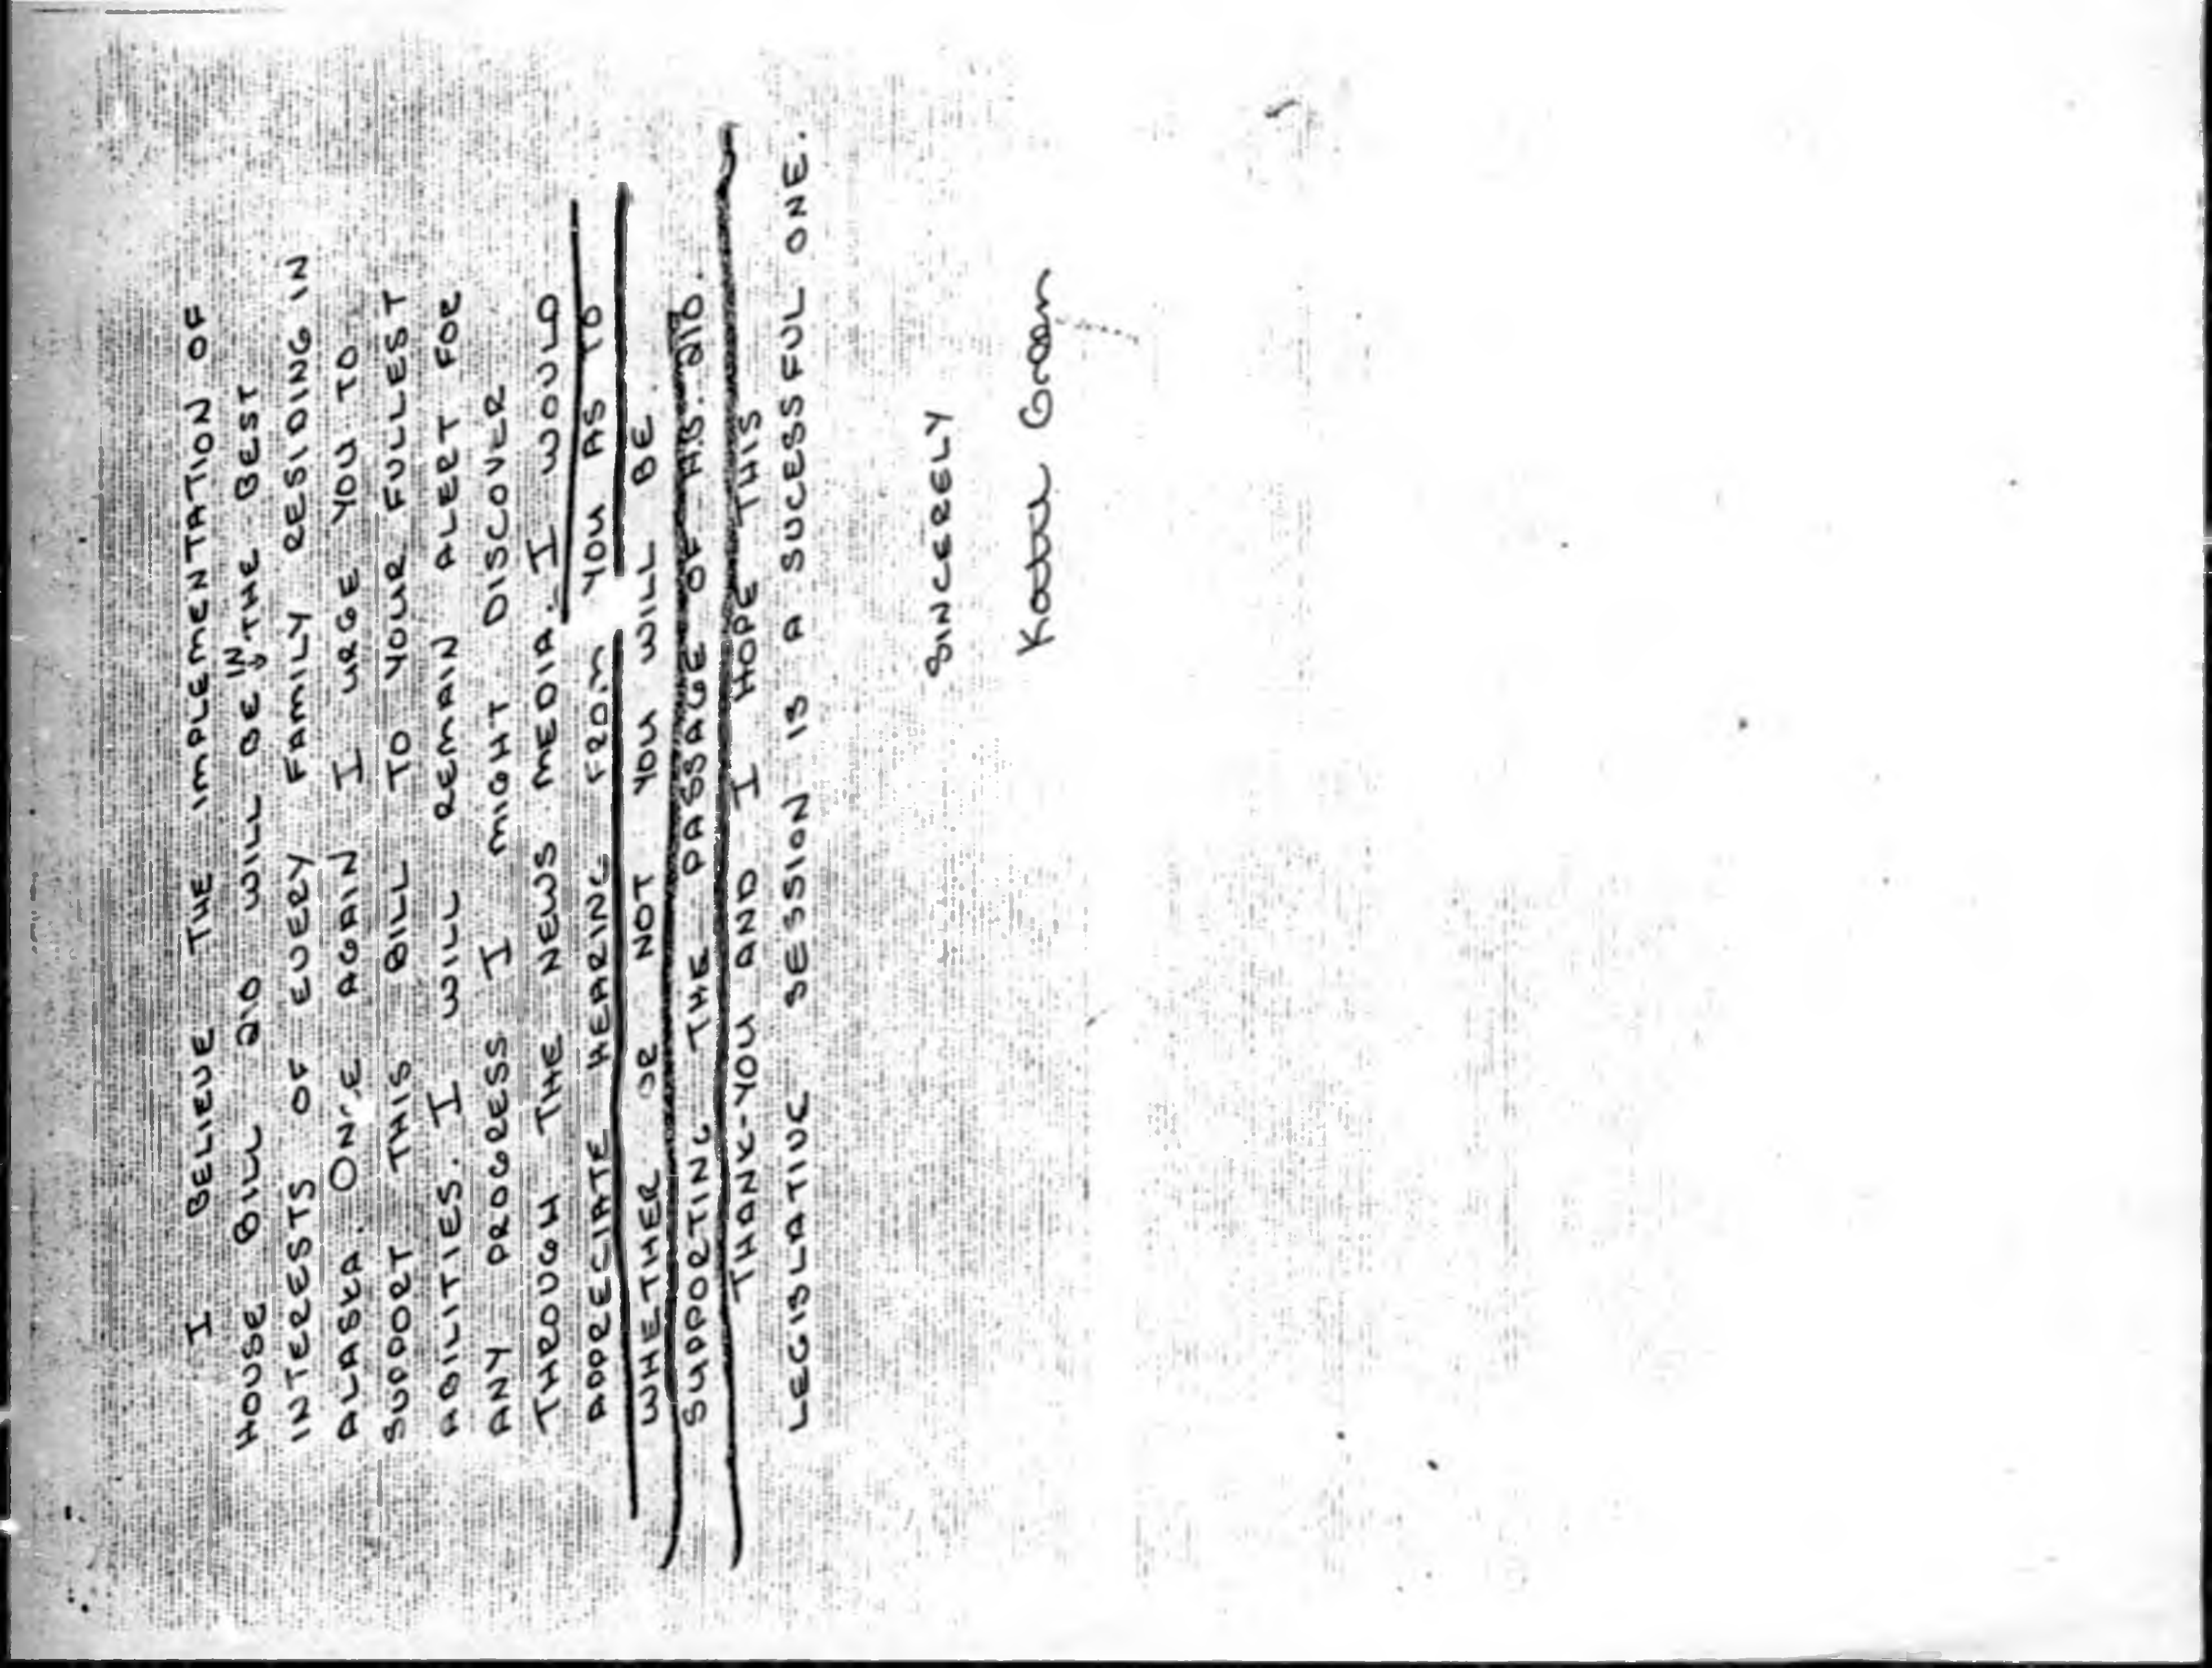 I BELIEVE THE IMPLEMENTATION OF
HOUSE BILL 210 WILL BE IN THE BEST
INTERESTS OF EVERY FAMILY RESIDING IN
ALASKA. ONCE AGAIN I URGE YOU TO
SUPPORT THIS BILL TO YOUR FULLEST
ABILITIES. I WILL REMAIN ALERT FOR
ANY PROGRESS I MIGHT DISCOVER
THROUGH THE NEWS MEDIA. I WOULD
APPRECIATE HEARING FROM YOU AS TO
WHETHER OR NOT YOU WILL BE
SUPPORTING THE PASSAGE OF H.B. 210.
THANK-YOU AND I HOPE THIS
LEGISLATIVE SESSION IS A SUCESSFUL ONE.
SINCERELY
Green